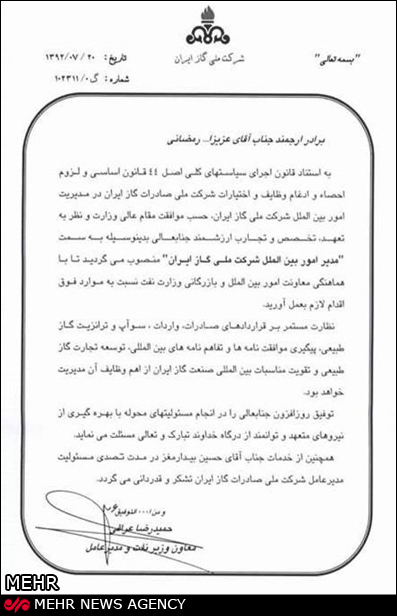 "بسمه تعالی"
شرکت ملی گاز ایران
تاریخ : ۲۰ / ۰۷ / ۱۳۹۲
شماره : گ ۰/ ۱۰۲۳۱۱
برادر ارجمند جناب آقای عزیزا... رمضانی
به استناد قانون اجرای سیاستهای کلی اصل ۴۴ قانون اساسی و لزوم
احصاء و ادغام وظایف و اختیارات شرکت ملی صادرات گاز ایران در مدیریت
امور بین الملل شرکت ملی گاز ایران، حسب موافقت مقام عالی وزارت و نظر به
تعهد، تخصص و تجارب ارزشمند جنابعالی بدینوسیله به سمت
"مدیر امور بین الملل شرکت ملی گاز ایران" منصوب می گردید تا با
هماهنگی معاونت امور بین الملل و بازرگانی وزارت نفت نسبت به موارد فوق
اقدام لازم بعمل آورید.
نظارت مستمر بر قراردادهای صادرات، واردات ، سوآپ و ترانزیت گاز
طبیعی، پیگیری موافقت نامه ها و تفاهم نامه های بین المللی، توسعه تجارت گاز
طبیعی و تقویت مناسبات بین المللی صنعت گاز ایران از اهم وظایف آن مدیریت
خواهد بود.
توفیق روزافزون جنابعالی را در انجام مسئولیتهای محوله با بهره گیری از
نیروهای متعهد و توانمند از درگاه خداوند تبارک و تعالی مسئلت می نماید.
همچنین از خدمات جناب آقای حسین بیدارمغز در مدت تصدی مسئولیت
مدیرعامل شرکت ملی صادرات گاز ایران تشکر و قدردانی می گردد.
و من ا... التوفیق
حمیدرضا عراقی
معاون وزیر نفت و مدیرعامل
MEHR
MEHR NEWS AGENCY